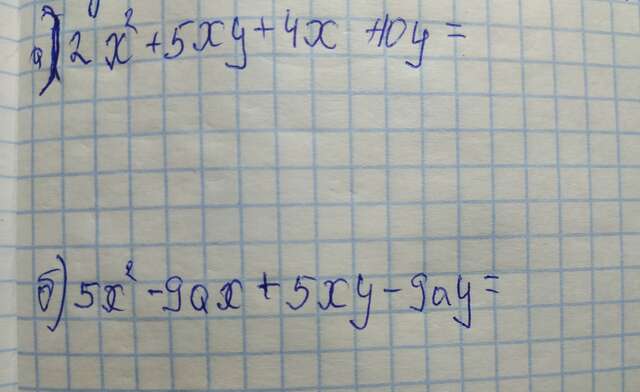 а) 2x² + 5xy + 4x + 10y =
б) 5x² - 9ax + 5xy - 9ay =